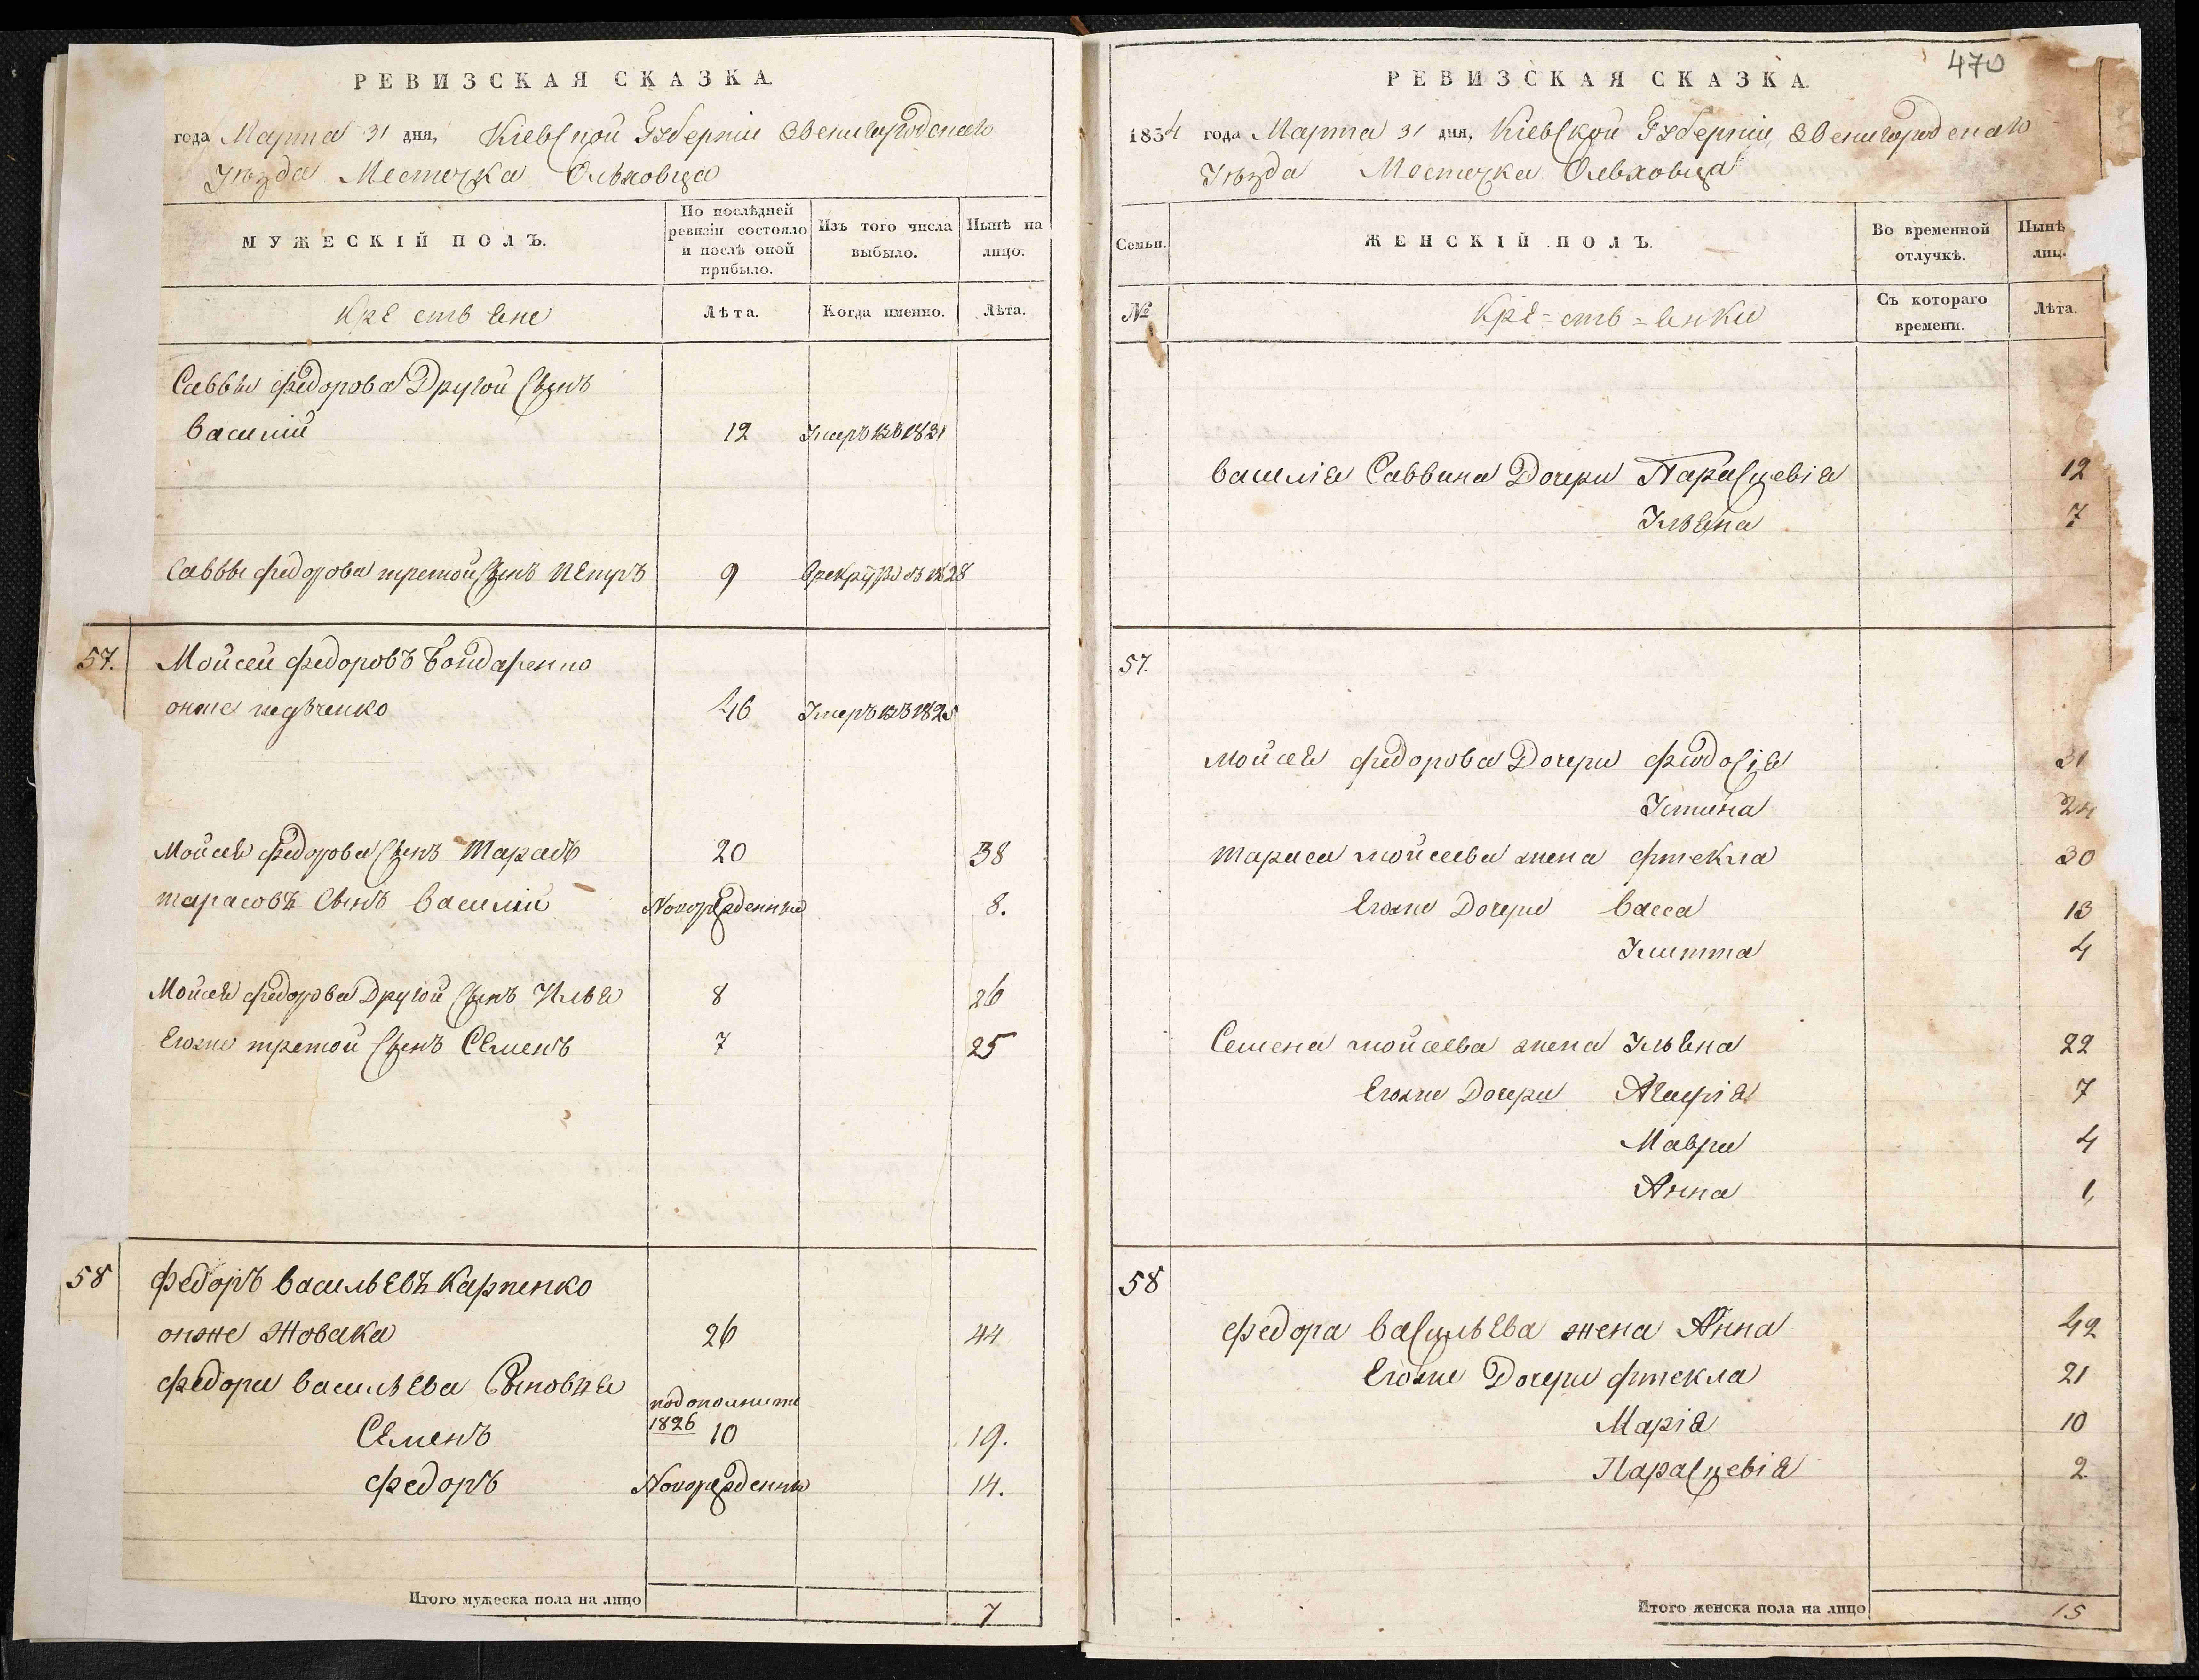 РЕВИЗСКАЯ СКАЗКА.
года Марта 31 дня, Кіевской Губерніи Звенигородскаго
Уѣзда Местечка Ольховца
МУЖЕСКІЙ ПОЛЪ.
По послѣдней ревизіи состояло и послѣ оной прибыло.
Изъ того числа выбыло.
Нынѣ на лицо.
Кре стья ене
Лѣта.
Когда именно.
Лѣта.
Саввы Федорова Другой Сынъ
Василій 12 Умеръ въ 1821
Саввы Федорова третой Сынъ Петръ 9 въ 1828
57. Мойсей Федоровъ Бондаренко
онже 46 Умеръ въ 1825
Мойсея Федорова Сынъ Тарасъ 20 38
Тарасовъ Сынъ Василій Новорожденный 8.
Мойсея Федорова Другой Сынъ Илья 8 26
Егоже третой Сынъ Семенъ 7 25
58 Федоръ Васильевъ Карпенко
онже Жовака 26 44
Федора Васильева Сыновья
Семенъ 1826 10 19.
Федоръ Новорожденный 14.
Итого мужеска пола на лицо 7
470
РЕВИЗСКАЯ СКАЗКА.
1854 года Марта 31 дня, Кіевской Губерніи, Звенигородскаго
Уѣзда Местечка Ольховца
Семьи.
ЖЕНСКІЙ ПОЛЪ.
Во временной отлучкѣ.
Нынѣ лиц.
№
Кре=сть=янки
Съ котораго времени.
Лѣта.
Василія Саввина Дочери Параскевія 12
Ульяна 7
57.
Мойсея Федорова Дочери Феодосія 31
Устина 24
Тараса Мойсеева жена Фтекла 30
Егоже Дочери Васса 13
4
Семена Мойсеева жена Ульяна 22
Егоже Дочери Агафія 7
Мавра 4
Анна 1,
58
Федора Васильева жена Анна 42
Егоже Дочери Фтекла 21
Марія 10
Параскевія 2
Итого женска пола на лицо 15